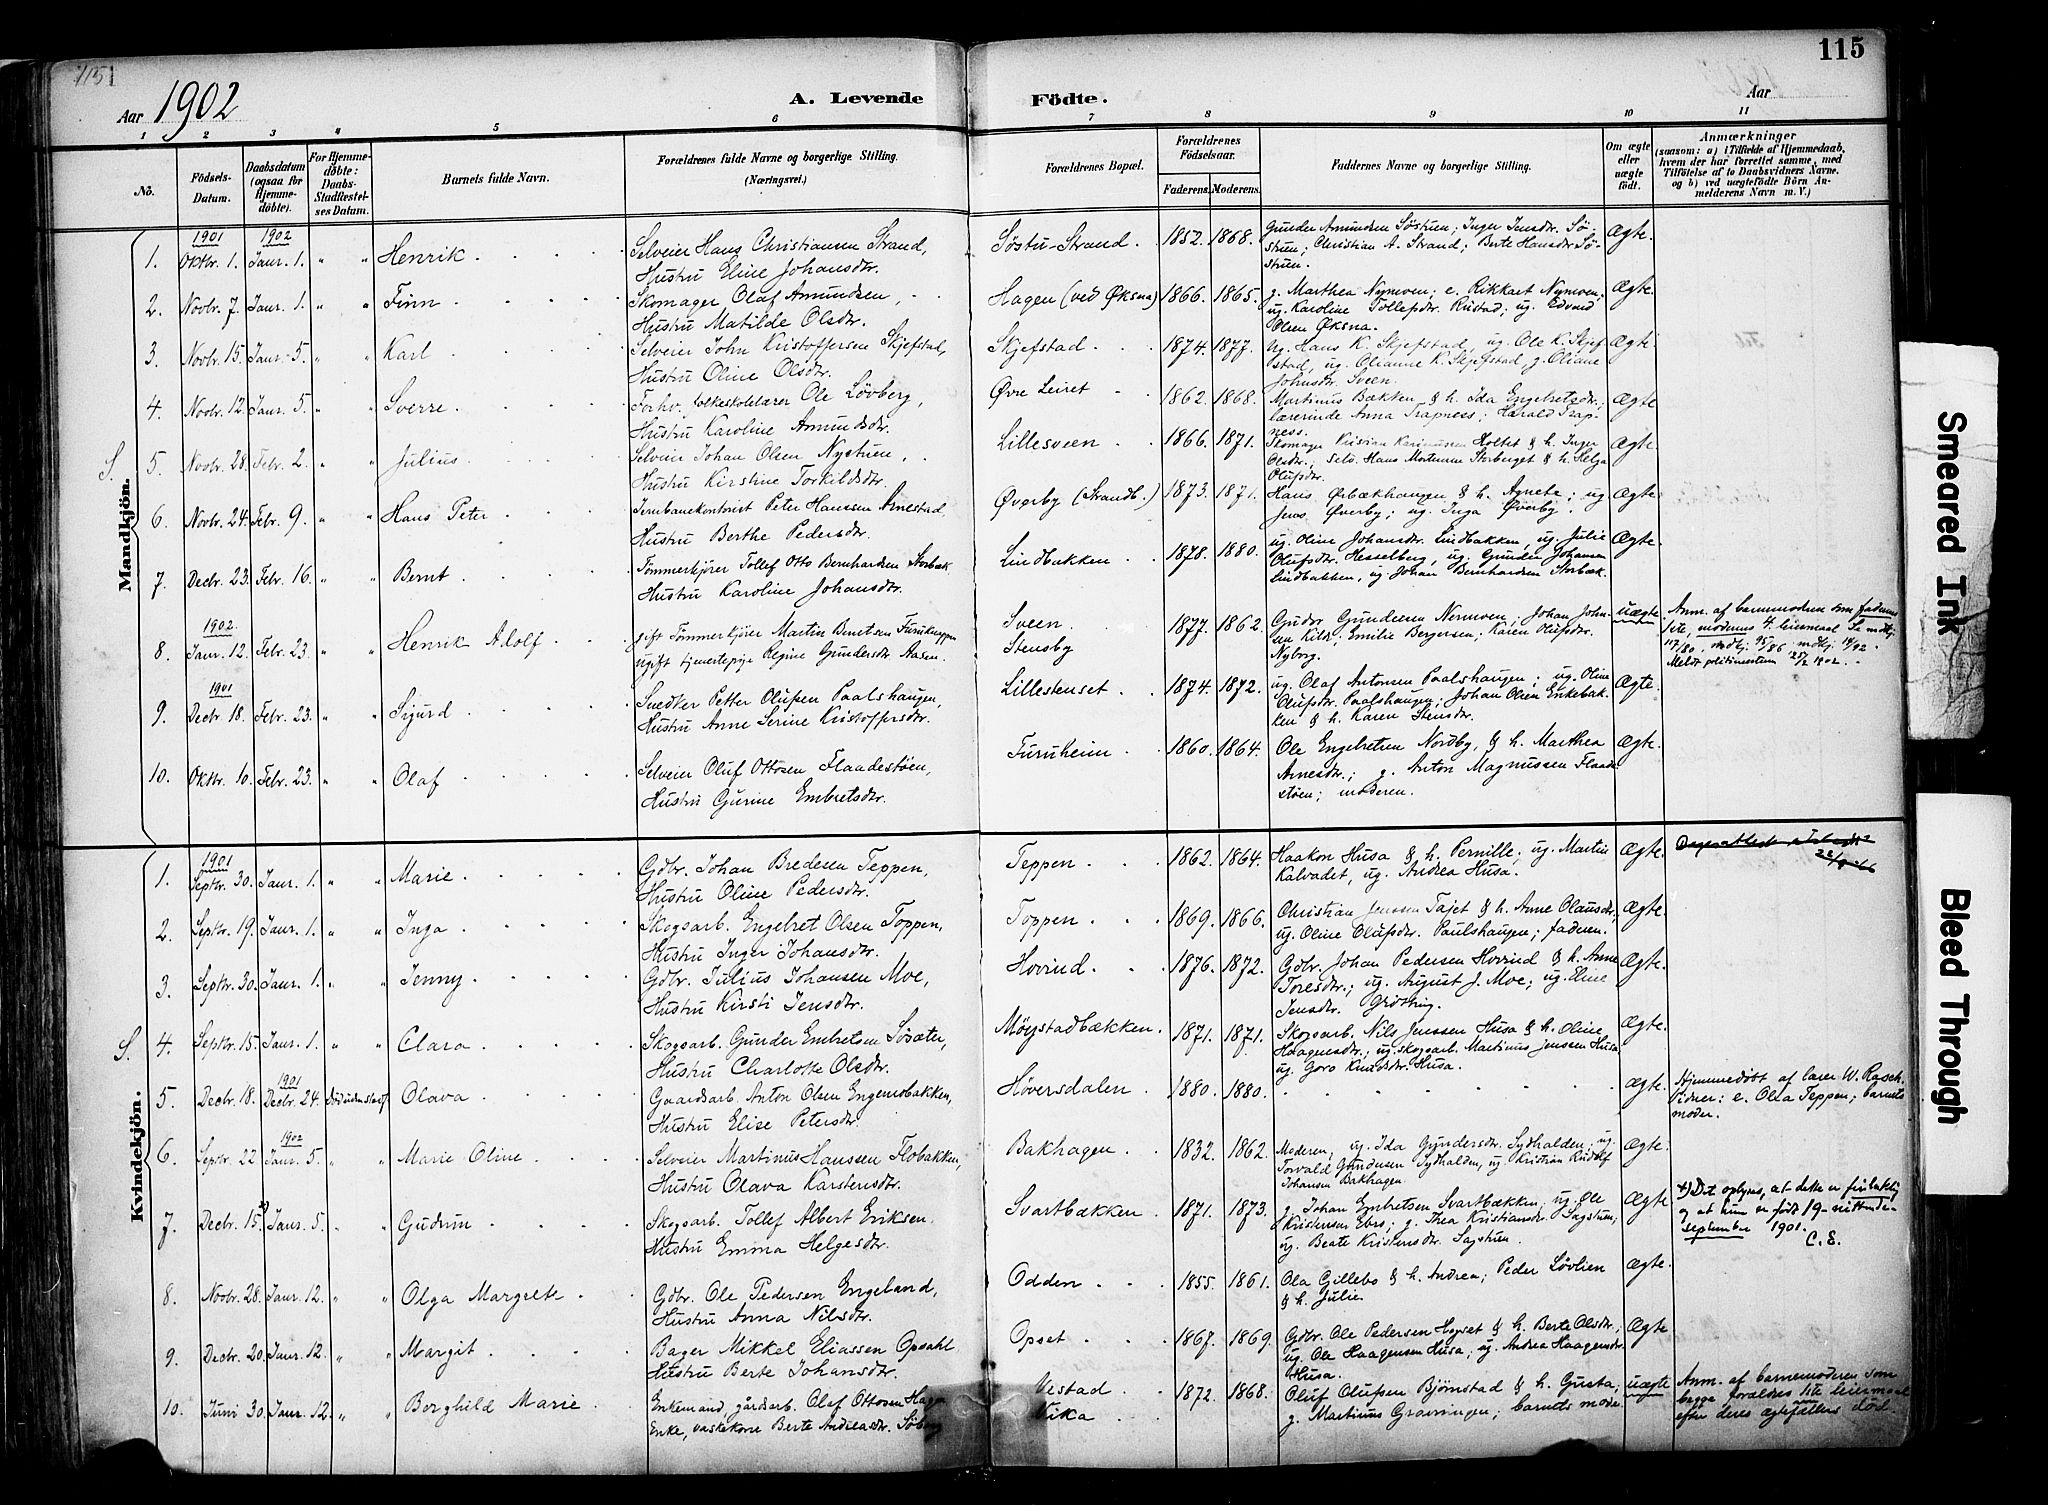 115
115
Aar 1902
A. Levende Födte.
Aar
1 2 3 4 5 6 7 8 9 10 11
No.
Födsels-Datum.
Daabsdatum (ogsaa for Hjemmedöbte).
For Hjemmedöbte: Daabs-Stadfæstelses Datum.
Barnets fulde Navn.
Forældrenes fulde Navne og borgerlige Stilling.
(Næringsvei.)
Forældrenes Bopæl.
Forældrenes Födselsaar.
Faderens. Moderens.
Faddernes Navne og borgerlige Stilling.
Om ægte eller uægte født.
Anmærkninger
(saasom: a) i Tilfælde af Hjemmedaab,
hvem der har forrettet samme, med
Tilföielse af to Daabsvidners Navne,
og b) ved uægtefödte Börn Anmelderens Navn m. V.)
Mandkjön.
1901 1902
1. Oktbr. 1. Janr. 1. " " Henrik
Selveier Hans Christiansen Strand,
Hustru Eline Johansdtr.
Søstu-Strand. 1852. 1868.
Gunder Amundsen Søstuen; Inger Jensdtr. Sø-
stuen; Christian A. Strand; Berte Hansdtr Sø-
stuen.
Ægte.
2. Novbr. 7. Janr. 1. " " Finn
Skomager Olaf Amundsen,
Hustru Matilde Olsdtr.
Hagen (ved Øksna) 1866. 1865.
g. Marthea Nymoen; e. Rikkart Nymoen;
ug. Karoline Tollefsdtr. Rustad; ug. Edvard
Olsen Øksna.
Ægte.
3. Novbr. 15. Janr. 5. " " Karl
Selveier John Kristoffersen Skjefstad,
Hustru Oline Olsdtr.
Skjefstad. 1874. 1877.
Ug. Hans K. Skjefstad, ug. Ole K. Skjef
stad, ug. Olianne K. Skjefstad, g. Oliane
Johnsdtr. Sveen.
Ægte
4. Novbr. 12. Janr. 5. " " Sverre
Forhv. folkeskolelærer Ole Lövberg,
Hustru Karoline Amundsdtr.
Øvre Leiret 1862. 1868.
Martinus Bækken & h. Ida Engebretsdtr.,
lærerinde Anna Trapness; Harald Trap-
ness.
Ægte
S. 5. Novbr. 28. Febr. 2. " " Julius
Selveier Johan Olsen Nystuen,
Hustru Kirstine Torkildsdtr.
Lillesveen 1866. 1871.
Skomager Kristian Holtet & h. Inger
Olsdtr.; Selv. Hans Mortensen Storberget & h. Helga
Olufsdtr.
Ægte.
6. Novbr. 24. Febr. 9. " " Hans Peter
Jernbanekontorist Peter Hanssen Arnestad,
Hustru Berthe Pedersdtr.
Øverby (Strandb.) 1873. 1871.
Hans Ørbækhaugen & h. Agnete; ug
Jens Øverby; ug. Inga Øverby.
Ægte.
7. Decbr. 23. Febr. 16. " " Bernt
Tømmerkjører Tollef Otto Bernhardsen Storbæk
Hustru Karoline Johansdtr.
Lindbakken 1878. 1880.
ug. Oline Johansdtr. Lindbakken, ug. Julie
Olufsdtr. Hesselberg, ug. Gunder Johansen
Lindbakken, ug. Johan Bernhardsen Storbæk.
Ægte.
1902.
8. Janr. 12. Febr. 23. " " Henrik Adolf
gift Tømmerkjører Martin Berntsen Furuknappen
ugift tjenestepige Regine Gundersdtr. Aasen.
Sveen. Stensby 1877. 1862.
Gudor Gundersen Nermoen, Johan John-
sen Kilde; Emilie Bergersen; Karen Olufsdtr.
Nyborg.
uægte
Anm. af barnemoderen som faderens
1ste, moderens 4. leiermaal. Se mdkj.
117/80. mdkj. 95/86 mdkj. 14/92.
Meldt politimesteren 25/2 1902.
1901
9. Decbr. 18. Febr. 23. " " Sigurd
Snedker Petter Olufsen Paalshaugen,
Hustru Anne Serine Kristoffersdtr.
Lillestenset 1874. 1872.
ug. Olaf Antonsen Paalshaugen; ug. Oline
Olufsdtr. Paalshaugen; Johan Olsen Enkebak-
ken & h. Karen Stensdtr.
Ægte.
10. Oktbr. 10. Febr. 23. " " Olaf
Selveier Oluf Ottosen Flaadestøen,
Hustru Gurine Embretsdtr.
Furuheim 1860. 1864.
Ole Engebretsen Nordby, & h. Marthea
Arnesdtr.; g. Anton Magnussen Flaade-
støen; moderen.
Ægte.
Kvindekjön.
1901
1. Septbr. 30. Janr. 1. " " Marie
Gdbr. Johan Bredesen Teppen,
Hustru Oline Pedersdtr.
Teppen 1862. 1864.
Haakon Husa & h. Pernille; ug. Martin
Kalvadet, ug. Andrea Husa.
Ægte.
2. Septbr. 19. Janr. 1. " " Inga
Skogsarb. Engebret Olsen Toppen,
Hustru Inger Johansdtr.
Toppen 1869. 1866.
Christian Jenssen Tajet & h. Anne Olausdtr.,
ug. Oline Olufsdtr. Paulshaugen; faderen.
Ægte.
3. Septbr. 30. Janr. 1. " " Jenny
Gdbr. Julius Johansen Moe,
Hustru Kirsti Jensdtr.
Hovind. 1876. 1872.
Gdbr. Johan Pedersen Hovind & h. Anne
Toresdtr.; ug. August J. Moe; ug. Eline
Jensdtr. Grötting.
Ægte.
S. 4. Septbr. 15. Janr. 1. " " Clara
Skogsarb. Gunder Embretsen Søsæter,
Hustru Charlotte Olsdtr.
Møystadbækken. 1871. 1871.
Skogsarb. Nils Jenssen Husa & h. Oline
Haagensdtr.; ug. skogsarb. Martinus Jenssen Husa.
ug. Goro Knudsdtr. Husa.
Ægte
1901
5. Decbr. 18. Decbr. 24. Död uden stadf. Olava
Gaardsarb. Anton Olsen Engemobakken,
Hustru Elise Petersdtr.
Høversdalen 1880. 1880.
ægte.
Hjemmedöbt af lærer W. Rasch.
Vidner: e. Olea Teppen; barnets
moder.
1902
6. Septbr. 22 Janr. 5. " " Marie Oline
Selveier Martinus Hanssen Flobakken,
Hustru Olava Karstensdtr.
Bakhagen 1832. 1862.
Moderen, ug. Ida Gundersdtr. Sydhalden; ug.
Torvald Gundersen Sydhalden, ug. Kristian Rudolf
Johansen Bakhagen.
Ægte.
7. Decbr. 15. Janr. 5. " " Gudrun
Skogsarb. Tollef Albert Eriksen.
Hustru Emma Helgesdtr.
Svartbækken 1871. 1873.
g. Johan Embretsen Svartbækken, ug. Ole
Kristensen Ebro; g. Thea Kristiansdtr. Sagstuen;
ug. Beate Kristensdtr. Sagstuen.
Ægte
+) Det oplyses, at dette er feilaktig
og at hun er født 19-nittende-
september 1901.
C. E.
8. Novbr. 28. Janr. 12. " " Olga Margrete
Gdbr. Ole Pedersen Engeland,
Hustru Anna Nilsdtr.
Odden 1855. 1861.
Ola Gillebo & h. Andrea; Peder Løvlien
& h. Julie.
Ægte.
9. Decbr. 20. Janr. 12. " " Margit
Bager Mikkel Eliassen Opsahl
Hustru Berte Johansdtr.
Opset 1867. 1869.
Gdbr. Ole Pedersen Hogset & h. Berte Olsdtr.;
ug. Ole Haagensen Husa; ug. Andrea Haagensdtr.
Husa.
Ægte
10. Juni 30. Janr. 12. " " Borghild Marie
Enkemand, gårdsarb. Olaf Ottosen Hagen
Enke, vaskekone Berte Andreasdtr. Söberg
Vestad Vika 1872. 1868.
Oluf Olufsen Bjørnstad & h. Gusta;
g. Martinus Gravningen; barnets moder.
uægte
Anm. af barnemoderen som
begge forældres 1ste leiermaal
efter deres ægtefællers död.
Smeared Ink
Bleed Through